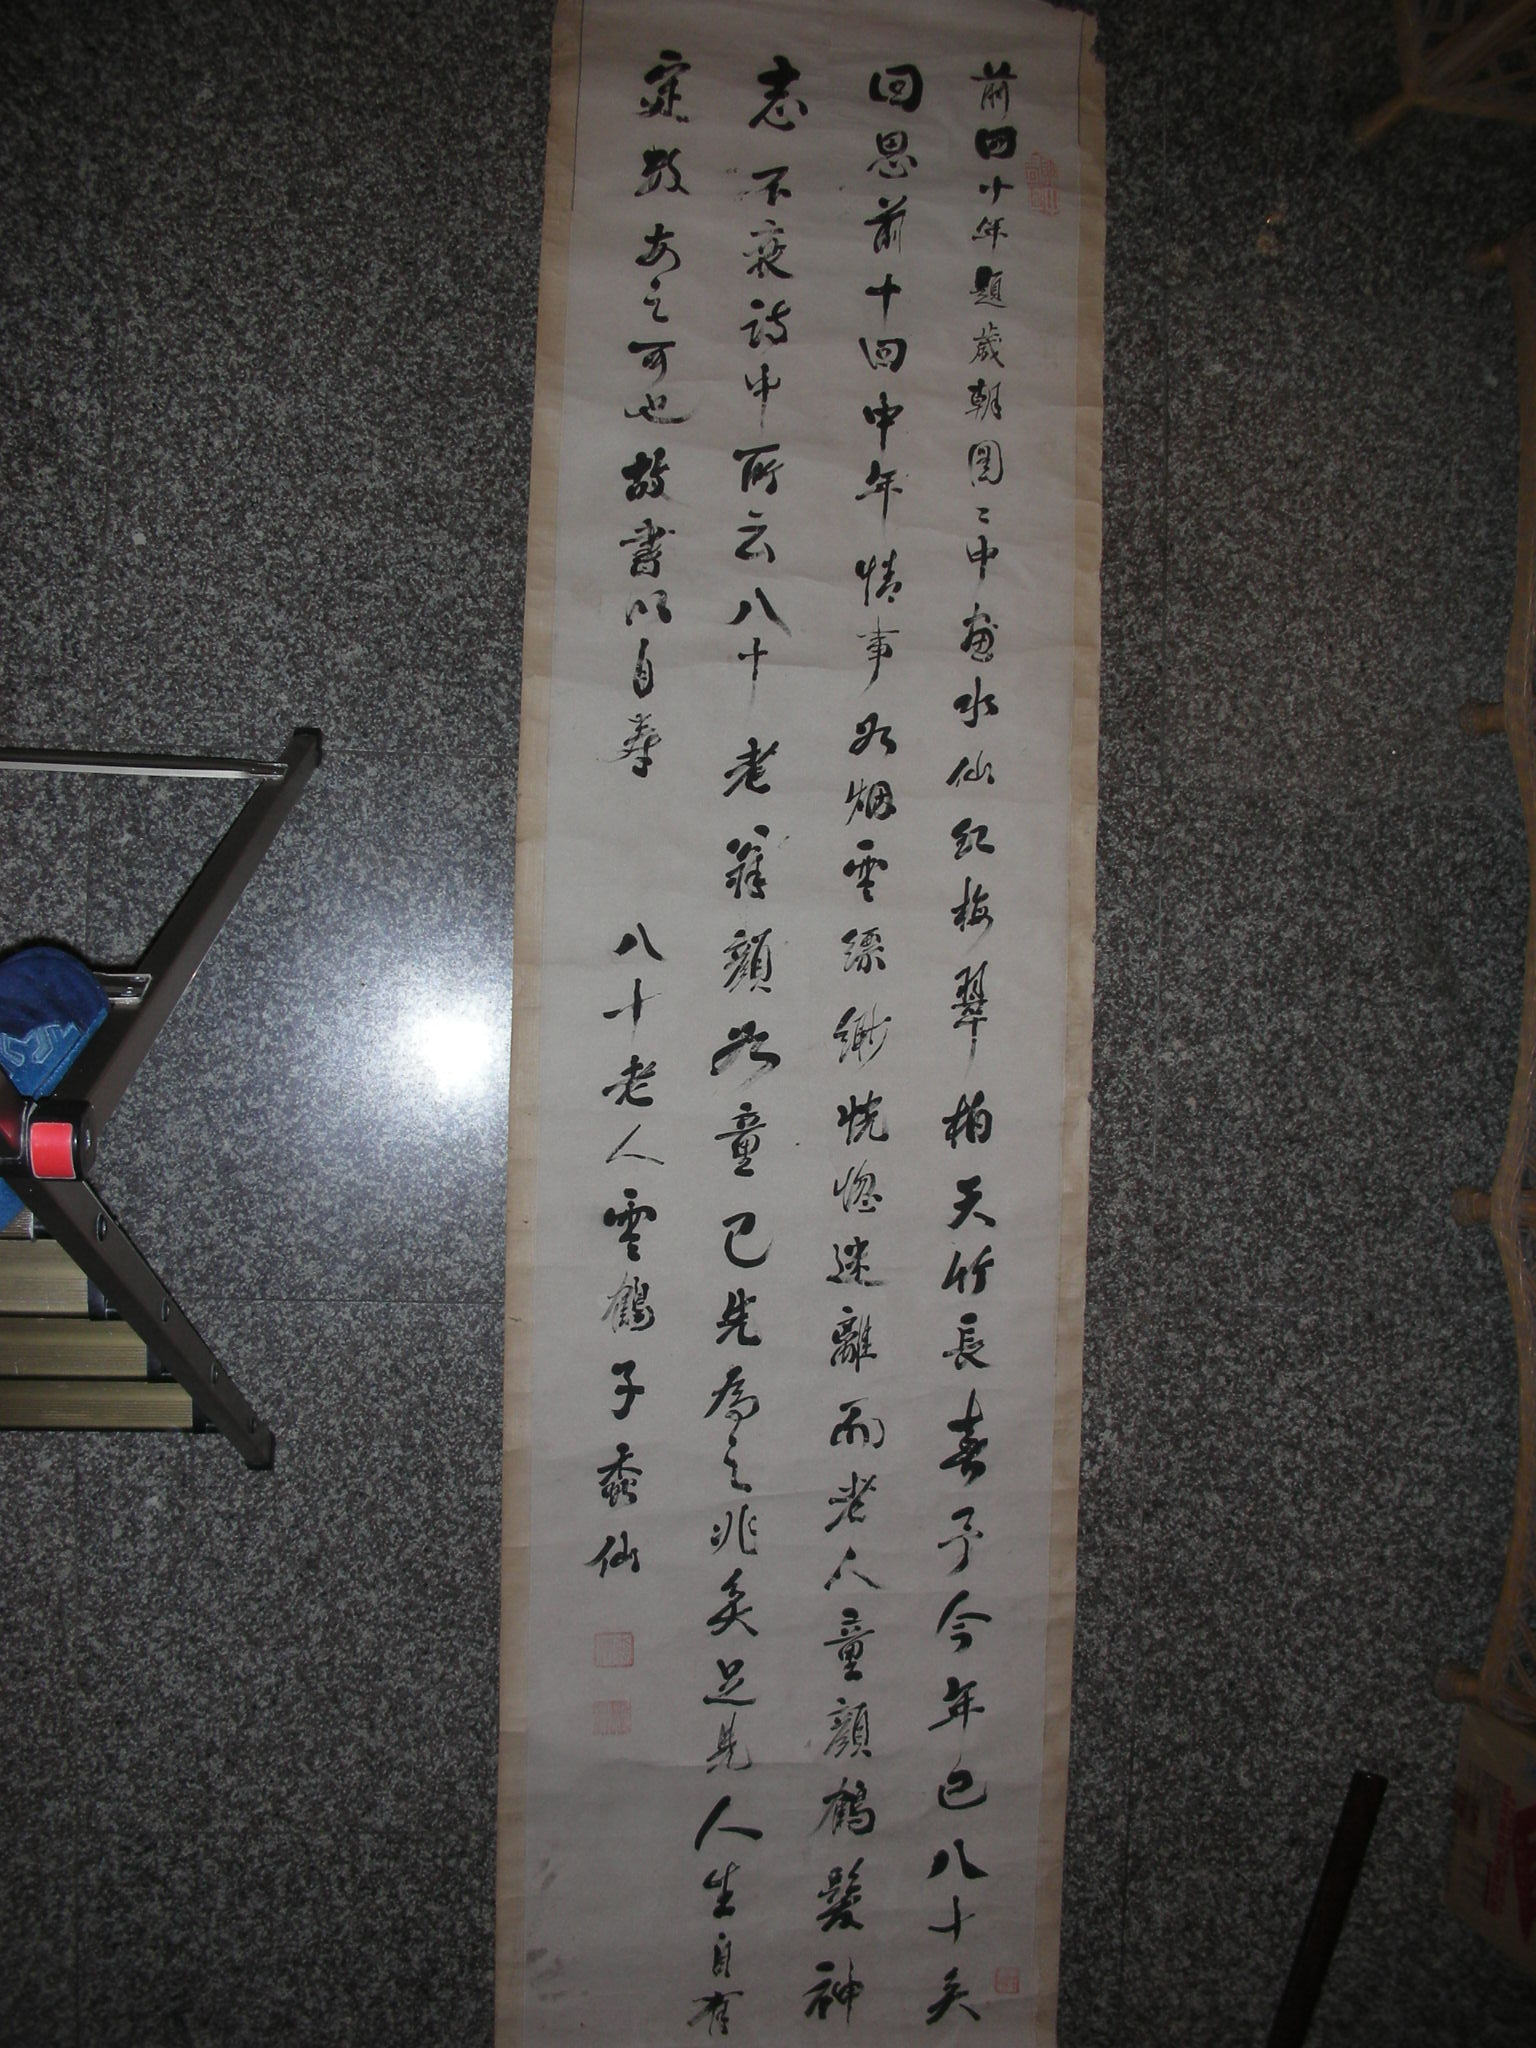 前四十年題歲朝圖〻中畫水仙紅梅翠柏天竹長春予今年已八十矣
回思前十回申年情事如烟雲縹緲恍惚迷離而老人童顏鶴髮神
志不衰詩中所云八十老翁顏如童已先為之兆矣足見人生自有
定數安之可也故書以自壽
八十老人雲鶴子蠢仙